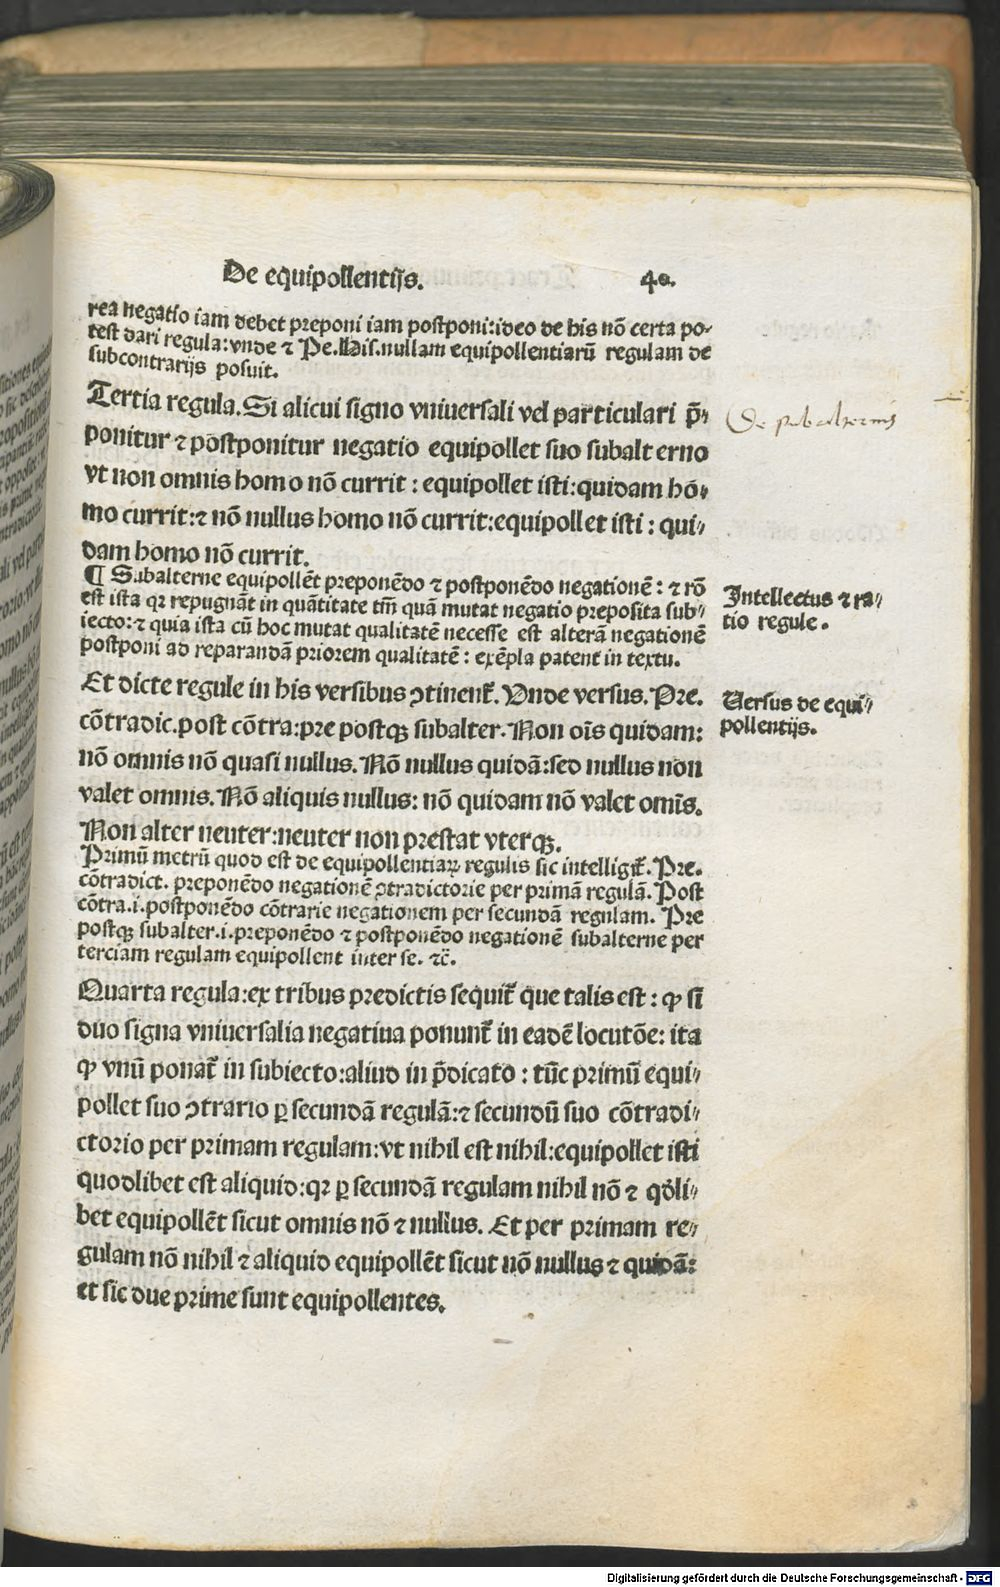 De equipollentijs. 40.
rea negatio iam debet preponi iam postponi:ideo de his nō certa po-
test dari regula:vnde ⁊ Pe.His.nullam equipollentiarū regulam de
subcontrarijs posuit.
Tertia regula.Si alicui signo vniuersali vel particulari p̄-
ponitur ⁊ postponitur negatio equipollet suo subalterno
vt non omnis homo nō currit : equipollet isti:quidam ho-
mo currit:⁊ nō nullus homo nō currit:equipollet isti : qui-
dam homo nō currit.
¶ Subalterne equipollēt preponēdo ⁊ postponēdo negationē : ⁊ rō
est ista qꝛ repugnāt in quātitate tm̄ quā mutat negatio preposita sub-
iecto:⁊ quia ista cū hoc mutat qualitatē necesse est alterā negationē
postponi ad reparandā priorem qualitatē : exēpla patent in textu.
Et dicte regule in his versibus ↄtinent᷑. Vnde versus. Pre.
cōtradic.post cōtra:pre postqꝫ subalter. Non oīs quidam:
nō omnis nō quasi nullus. Nō nullus quidā:sed nullus non
valet omnis. Nō aliquis nullus: nō quidam nō valet omīs.
Non alter neuter:neuter non prestat vterqꝫ.
Primū metrū quod est de equipollentiaꝝ regulis sic intelligit᷑. Pre.
cōtradict. preponēdo negationē ↄtradictorie per primā regulā. Post
cōtra.i.postponēdo cōtrarie negationem per secundā regulam. Pre
postqꝫ subalter.i.preponēdo ⁊ postponēdo negationē subalterne per
terciam regulam equipollent inter se. ⁊c̄.
Quarta regula:ex tribus predictis sequit᷑ que talis est : ꝙ si
duo signa vniuersalia negatiua ponunt᷑ in eadē locutōe: ita
ꝙ vnū ponat᷑ in subiecto:aliud in p̄dicato : tūc primū equi-
pollet suo ↄtrario ꝑ secundā regulā:⁊ secundū suo cōtradi-
ctorio per primam regulam:vt nihil est nihil:equipollet isti
quodlibet est aliquid:qꝛ ꝑ secundā regulam nihil nō ⁊ qdli-
bet equipollēt sicut omnis nō ⁊ nullus. Et per primam re-
gulam nō nihil ⁊ aliquid equipollēt sicut nō nullus ⁊ quidā:
et sic due prime sunt equipollentes.
De subalternis
Intellectus ⁊ ra-
tio regule.
Versus de equi-
pollentijs.
Digitalisierung gefördert durch die Deutsche Forschungsgemeinschaft - DFG